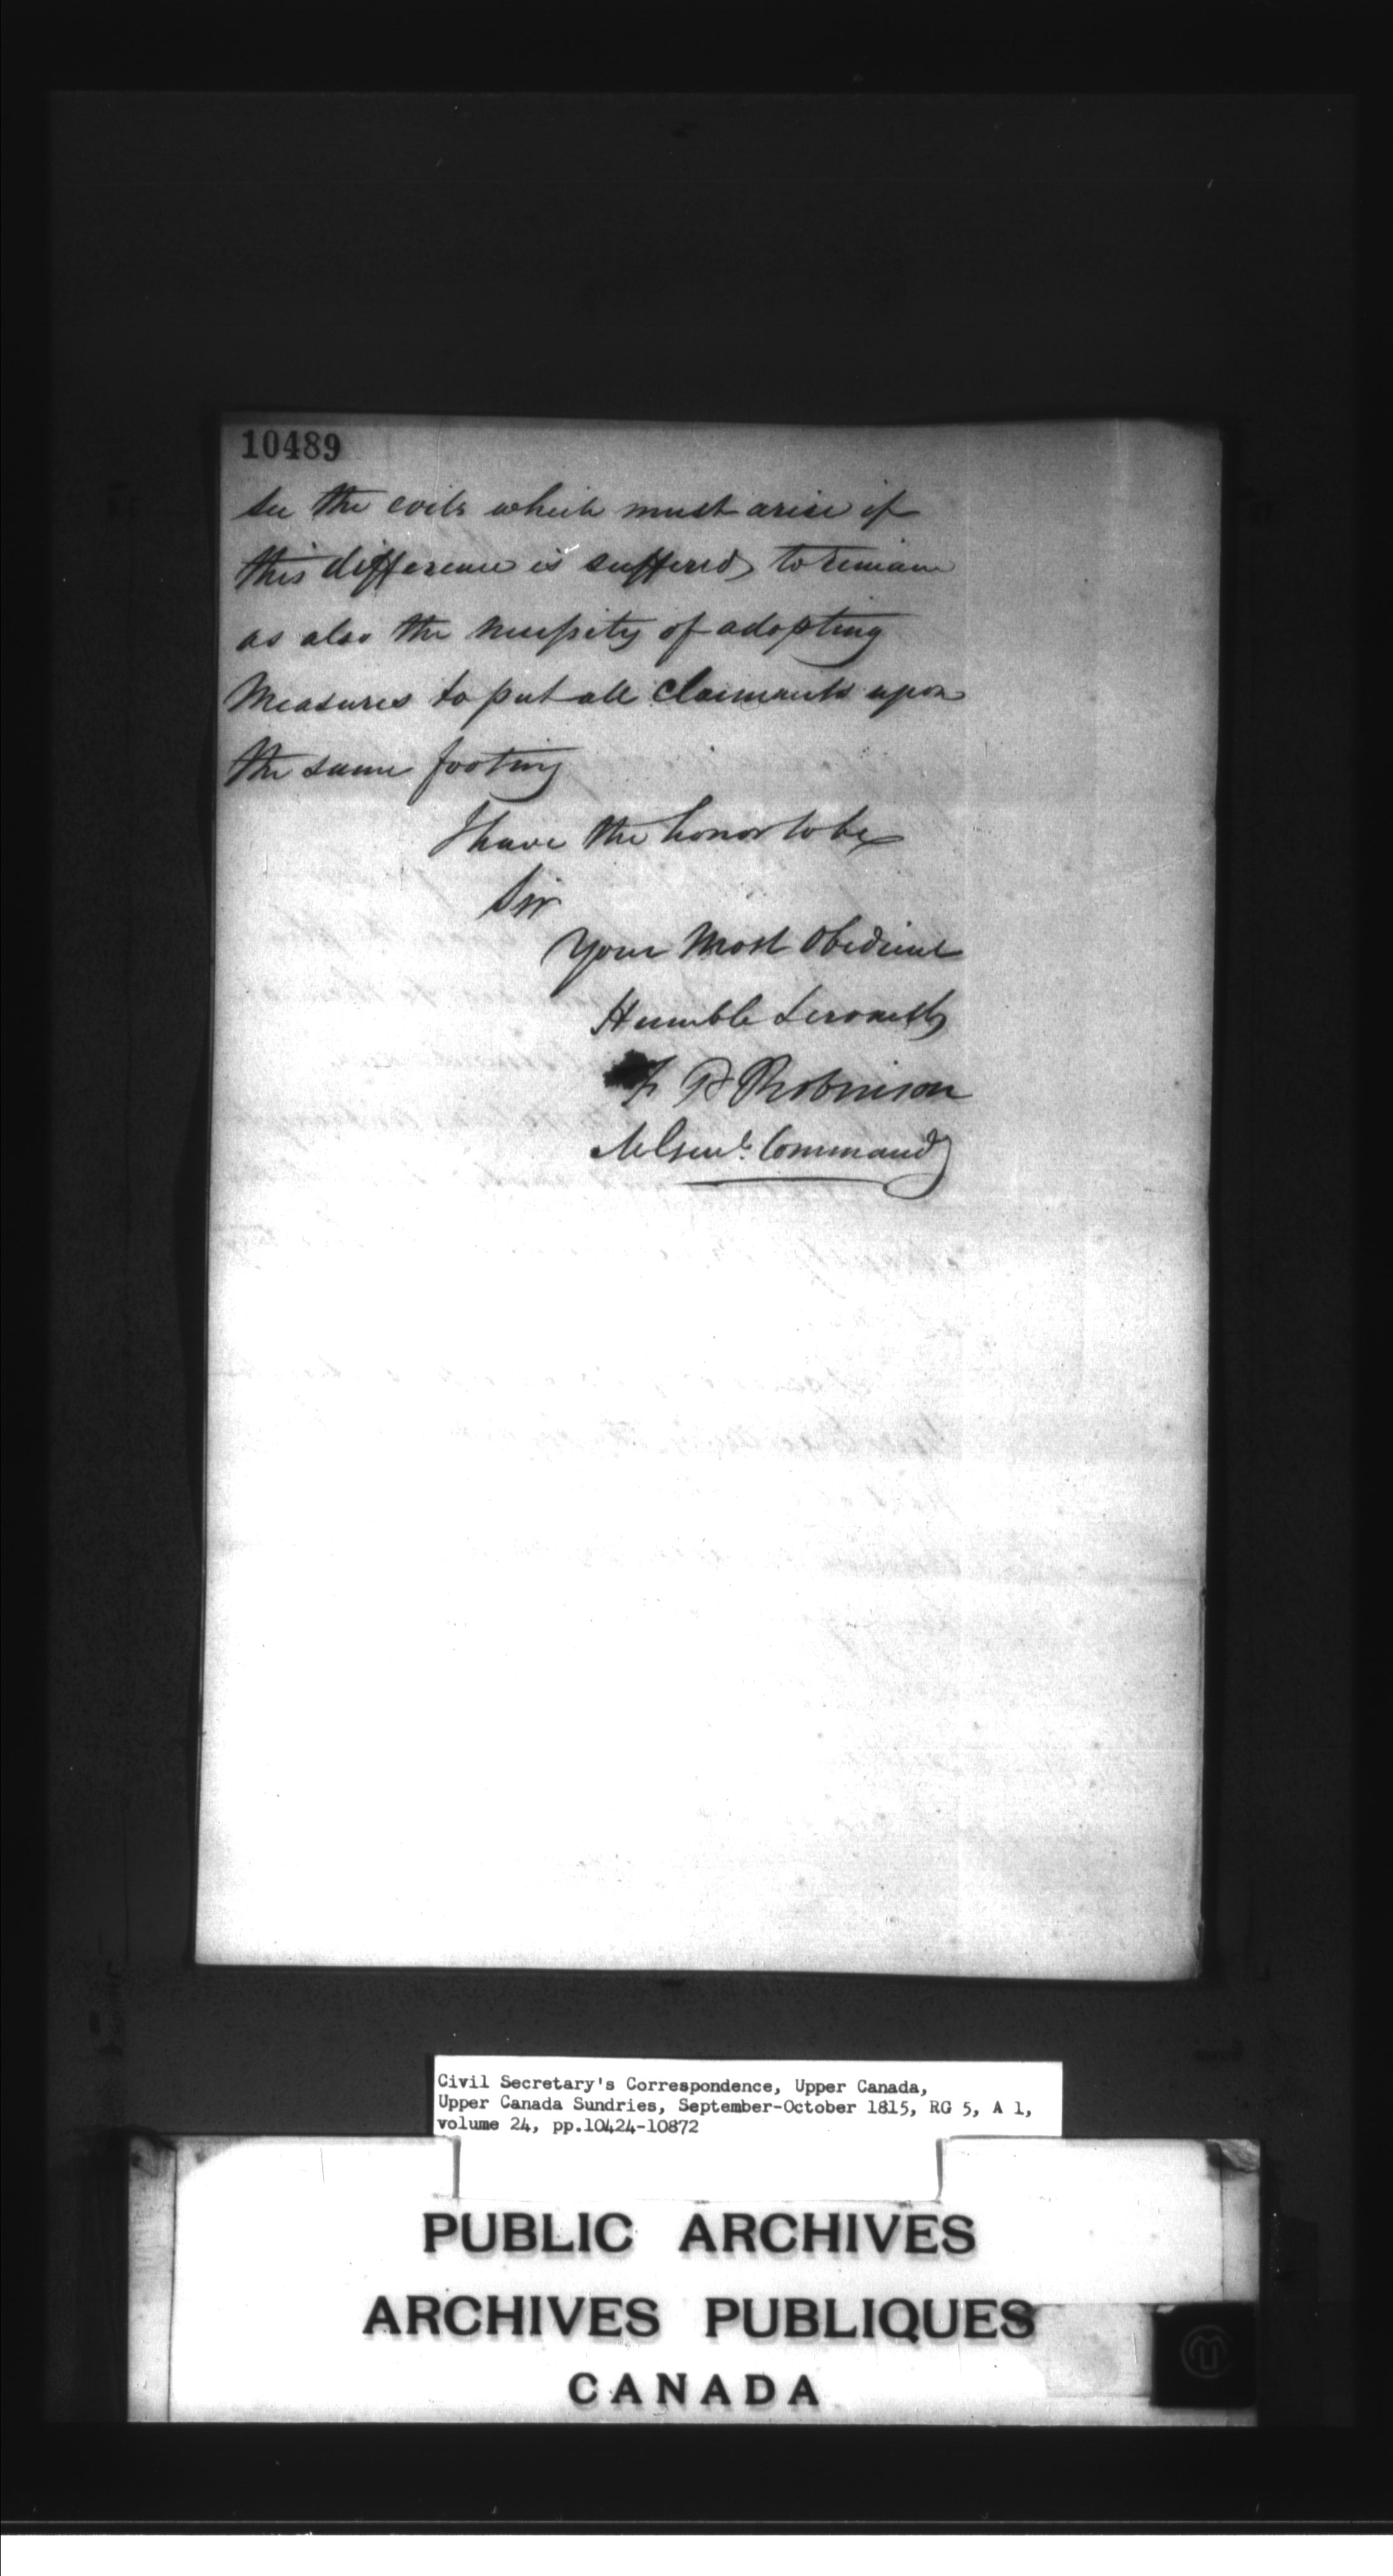 10489
see the evils which must arise if
this difference is suffered to remain
as also the necessity of adopting
Measures to put all claimants upon
the same footing
I have the honor to be
Sir
Your Most Obedient
Humble Servant
F P Robinson
M Genl. Command
Civil Secretary's Correspondence, Upper Canada,
Upper Canada Sundries, September-October 1815, RG 5, A 1,
volume 24, pp.10424-10872
PUBLIC ARCHIVES
ARCHIVES PUBLIQUES
CANADA